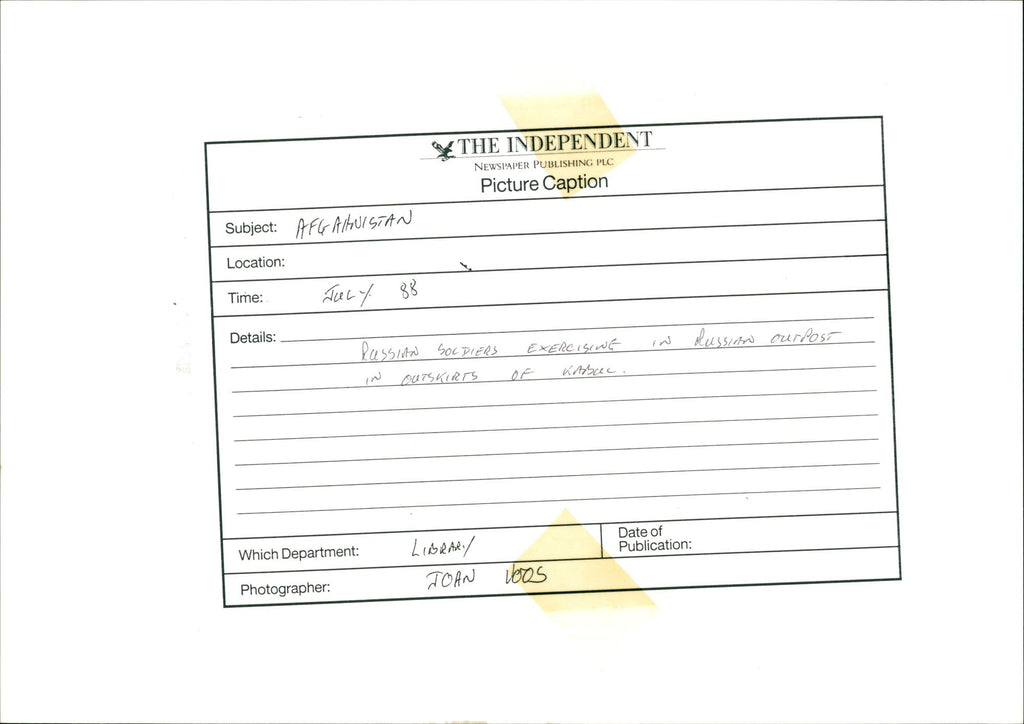 THE INDEPENDENT
NEWSPAPER PUBLISHING PLC
Picture Caption
Subject: AFGAHNISTAN
Location:
Time: JULY 88
Details: RUSSIAN SOLDIERS EXERCISING IN RUSSIAN OUTPOST
IN OUTSKIRTS OF KABUL.
Which Department: LIBRARY
Date of
Publication:
Photographer: JOAN VOOS